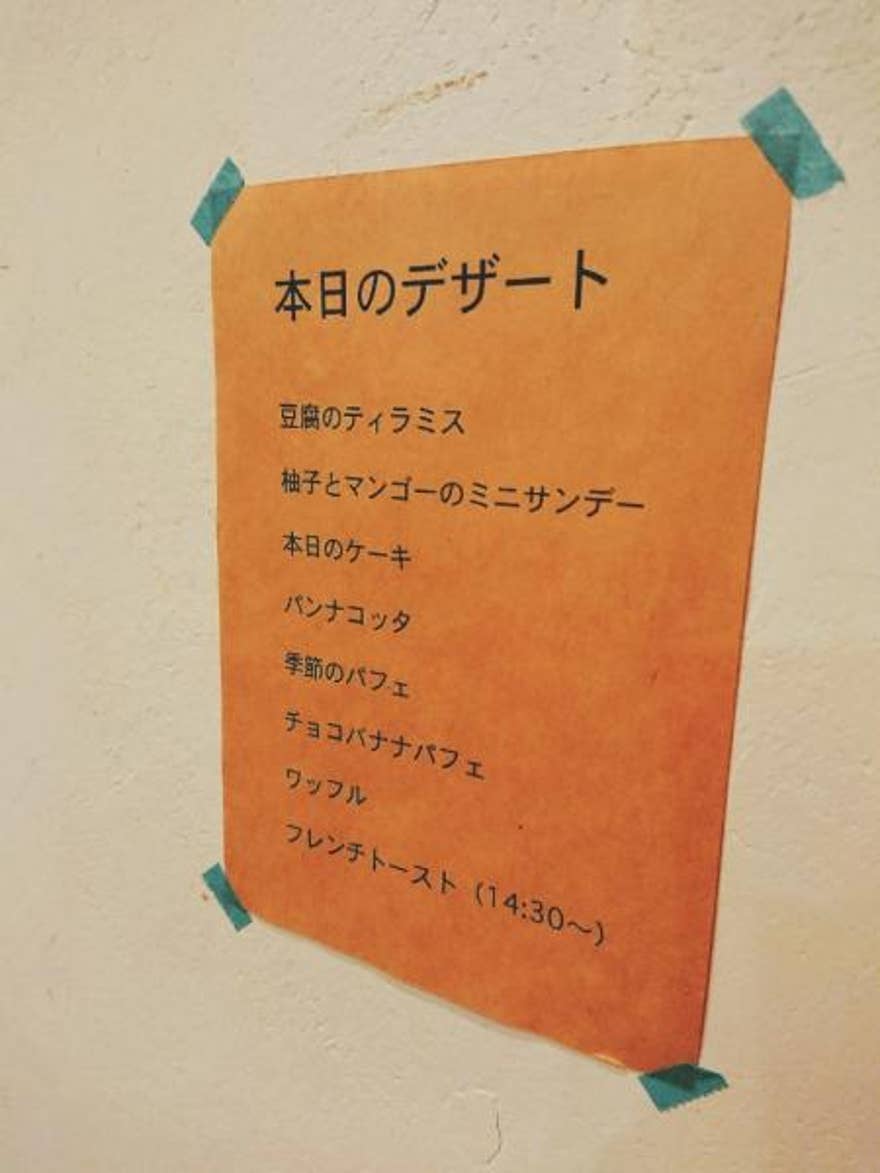 本日のデザート
豆腐のティラミス
柚子とマンゴーのミニサンデー
本日のケーキ
パンナコッタ
季節のパフェ
チョコバナナパフェ
ワッフル
フレンチトースト (14:30〜)